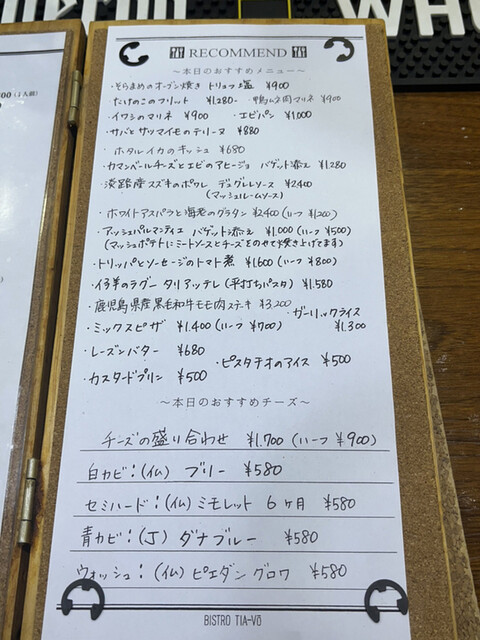 RECOMMEND
～本日のおすすめメニュー～
・そらまめのオーブン焼き トリュフ塩 ¥900
・たけのこのフリット ¥1,280- ・鴨ムネ肉マリネ ¥900
・イワシのマリネ ¥900 ・エビパン ¥1,000
・サバとサツマイモのテリーヌ ¥880
・ホタルイカのキッシュ ¥680
・カマンベールチーズとエビのアヒージョ バゲット添え ¥1,280
・淡路産スズキのポワレ デュグレレソース ¥2,400
(マッシュルームソース)
・ホワイトアスパラと海老のグラタン ¥2,400 (ハーフ ¥1,200)
・アッシェパルマンティエ バゲット添え ¥1,000 (ハーフ ¥500)
(マッシュポテトにミートソースとチーズをのせて焼き上げてます)
・トリッパとソーセージのトマト煮 ¥1,600 (ハーフ ¥800)
・仔羊のラグー タリアッテレ (平打ちパスタ) ¥1,580
・鹿児島県産黒毛和牛モモ肉ステーキ ¥3,200
・ガーリックライス
・ミックスピザ ¥1,400 (ハーフ ¥700) ¥1,300
・レーズンバター ¥680
・ピスタチオのアイス ¥500
・カスタードプリン ¥500
～本日のおすすめチーズ～
チーズの盛り合わせ ¥1,700 (ハーフ ¥900)
白カビ：(仏) ブリー ¥580
セミハード：(仏) ミモレット 6ヶ月 ¥580
青カビ：(J) ダナブルー ¥580
ウォッシュ：(仏) ピエダングロワ ¥580
BISTRO TIA-VŌ